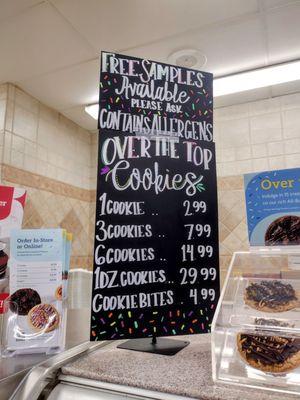 FREE SAMPLES
Available
PLEASE ASK
CONTAINS ALLERGENS
OVER THE TOP
Cookies
1 COOKIE .. 2.99
3 COOKIES .. 7.99
6 COOKIES .. 14.99
1 DZ COOKIES .. 29.99
COOKIE BITES .. 4.99
Order In-Store
or Online!
Over